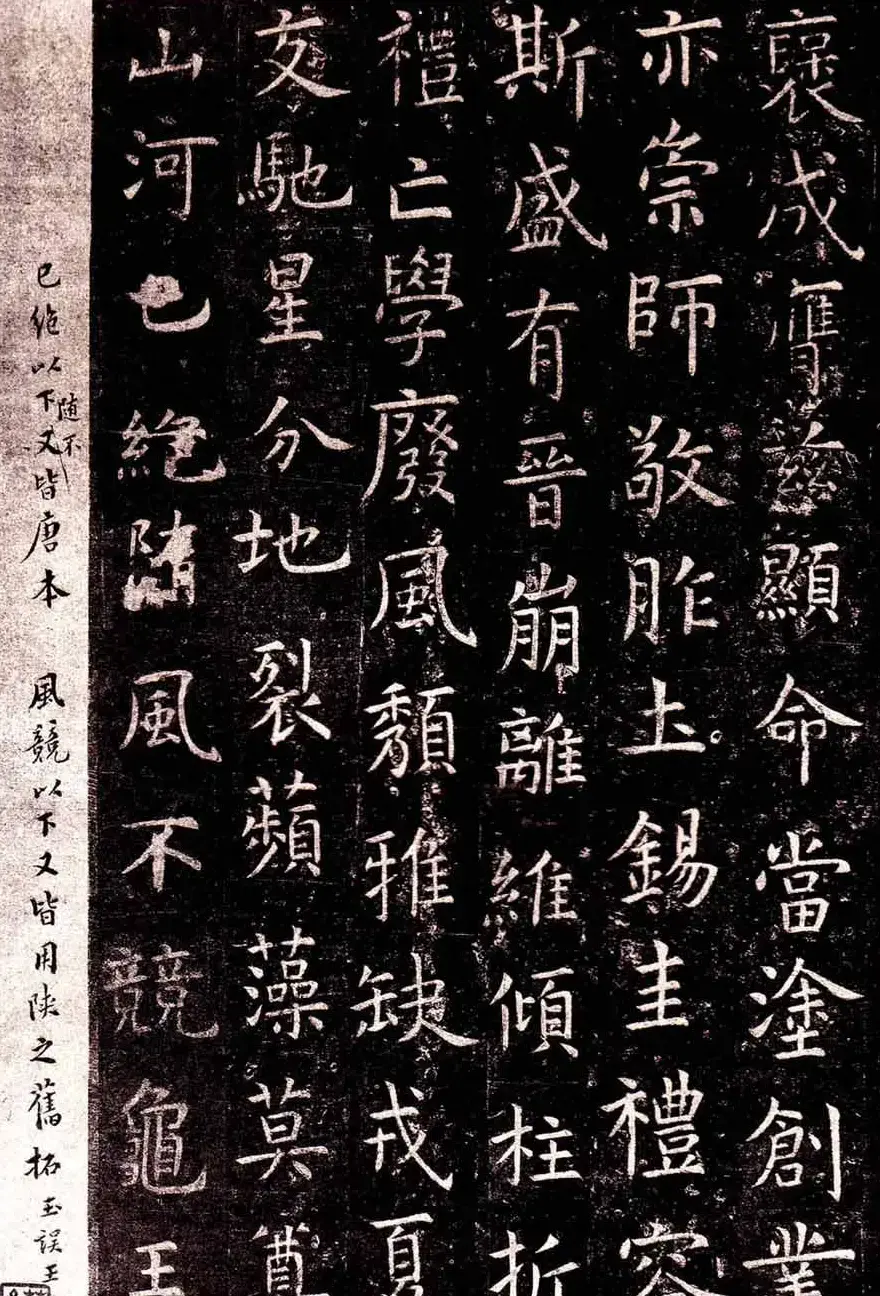 襃成膺茲顯命當塗創業
亦崇師敬胙土錫圭禮容
斯盛有晉崩離維傾柱折
禮亡學廢風頹雅缺戎夏
交馳星分地裂蘋藻莫奠
山河已絕隨風不競龜玉
已絶以下隨不又皆唐本 風競以下又皆用陝之舊拓 玉誤王